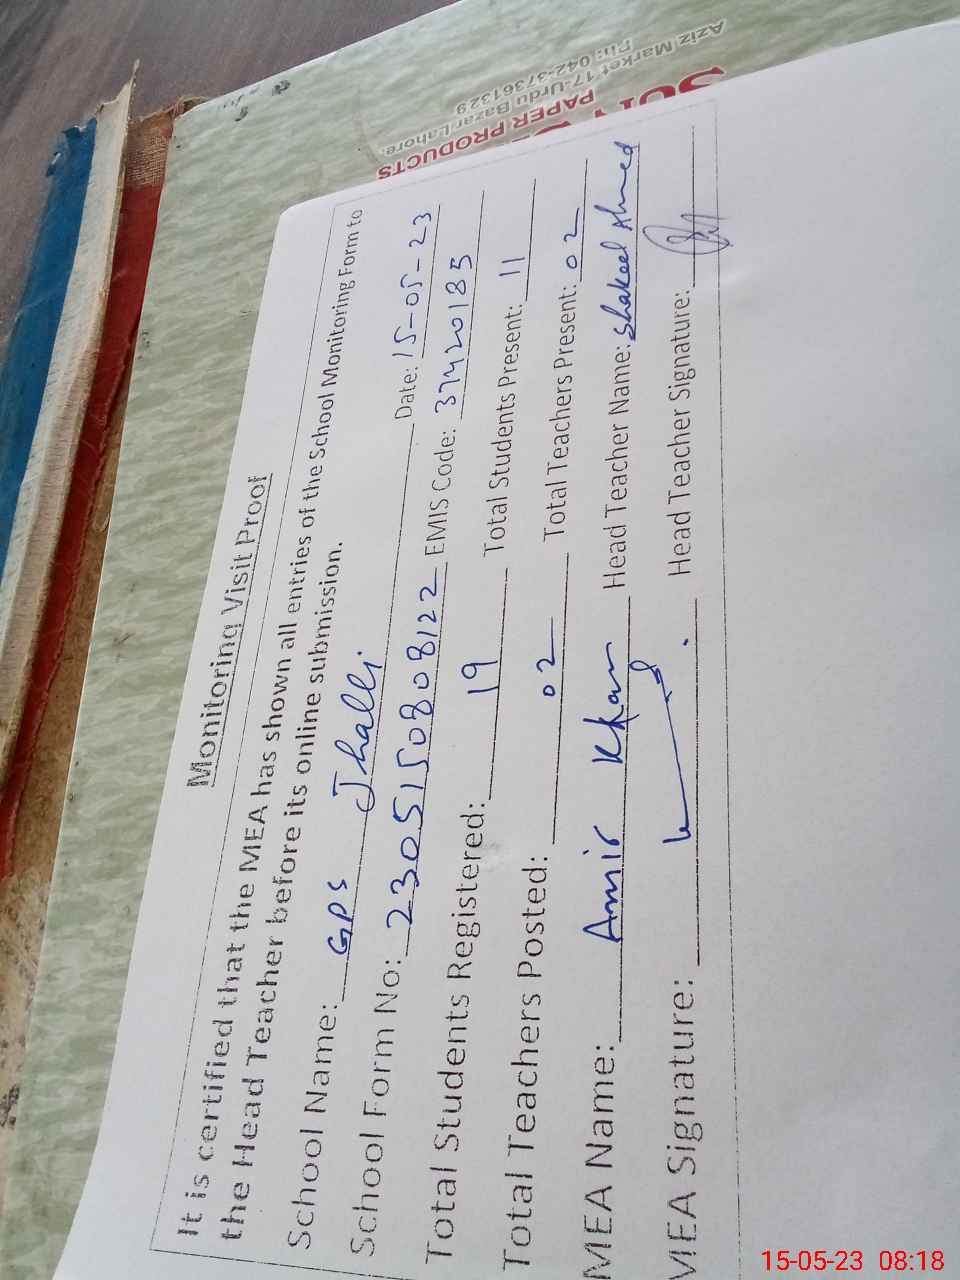 Monitoring Visit Proof
It is certified that the MEA has shown all entries of the School Monitoring Form to
the Head Teacher before its online submission.
School Name: GPS Jhalli Date: 15-05-23
School Form No: 2305150808122 EMIS Code: 37420185
Total Students Registered: 19 Total Students Present: 11
Total Teachers Posted: 02 Total Teachers Present: 02
MEA Name: Amir Khan Head Teacher Name: Shakeel Ahmed
MEA Signature: Head Teacher Signature:
PAPER PRODUCTS
Aziz Market 17-Urdu Bazar Lahore.
Ph: 042-37361329
15-05-23 08:18